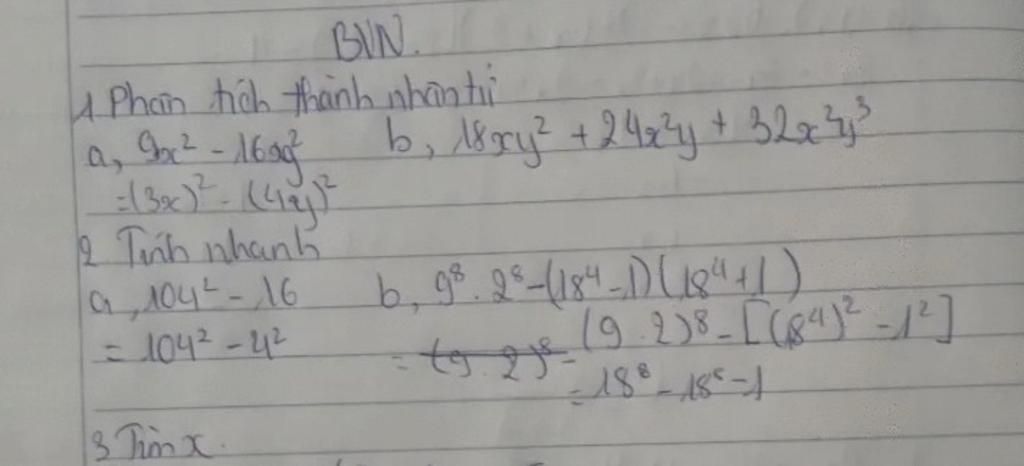 BVN.
1 Phân tích thành nhân tử
a, 9x² - 16y² b, 18xy² + 24x²y + 32x²y³
=(3x)² - (4y)²
2 Tính nhanh
a, 104² - 16 b, 9⁸ . 2⁸ - (18⁴ - 1)(18⁴ + 1)
= 104² - 4² = (9 . 2)⁸ = (9 . 2)⁸ - [(18⁴)² - 1²]
= 18⁸ - 18⁸ - 1
3 Tìm x.